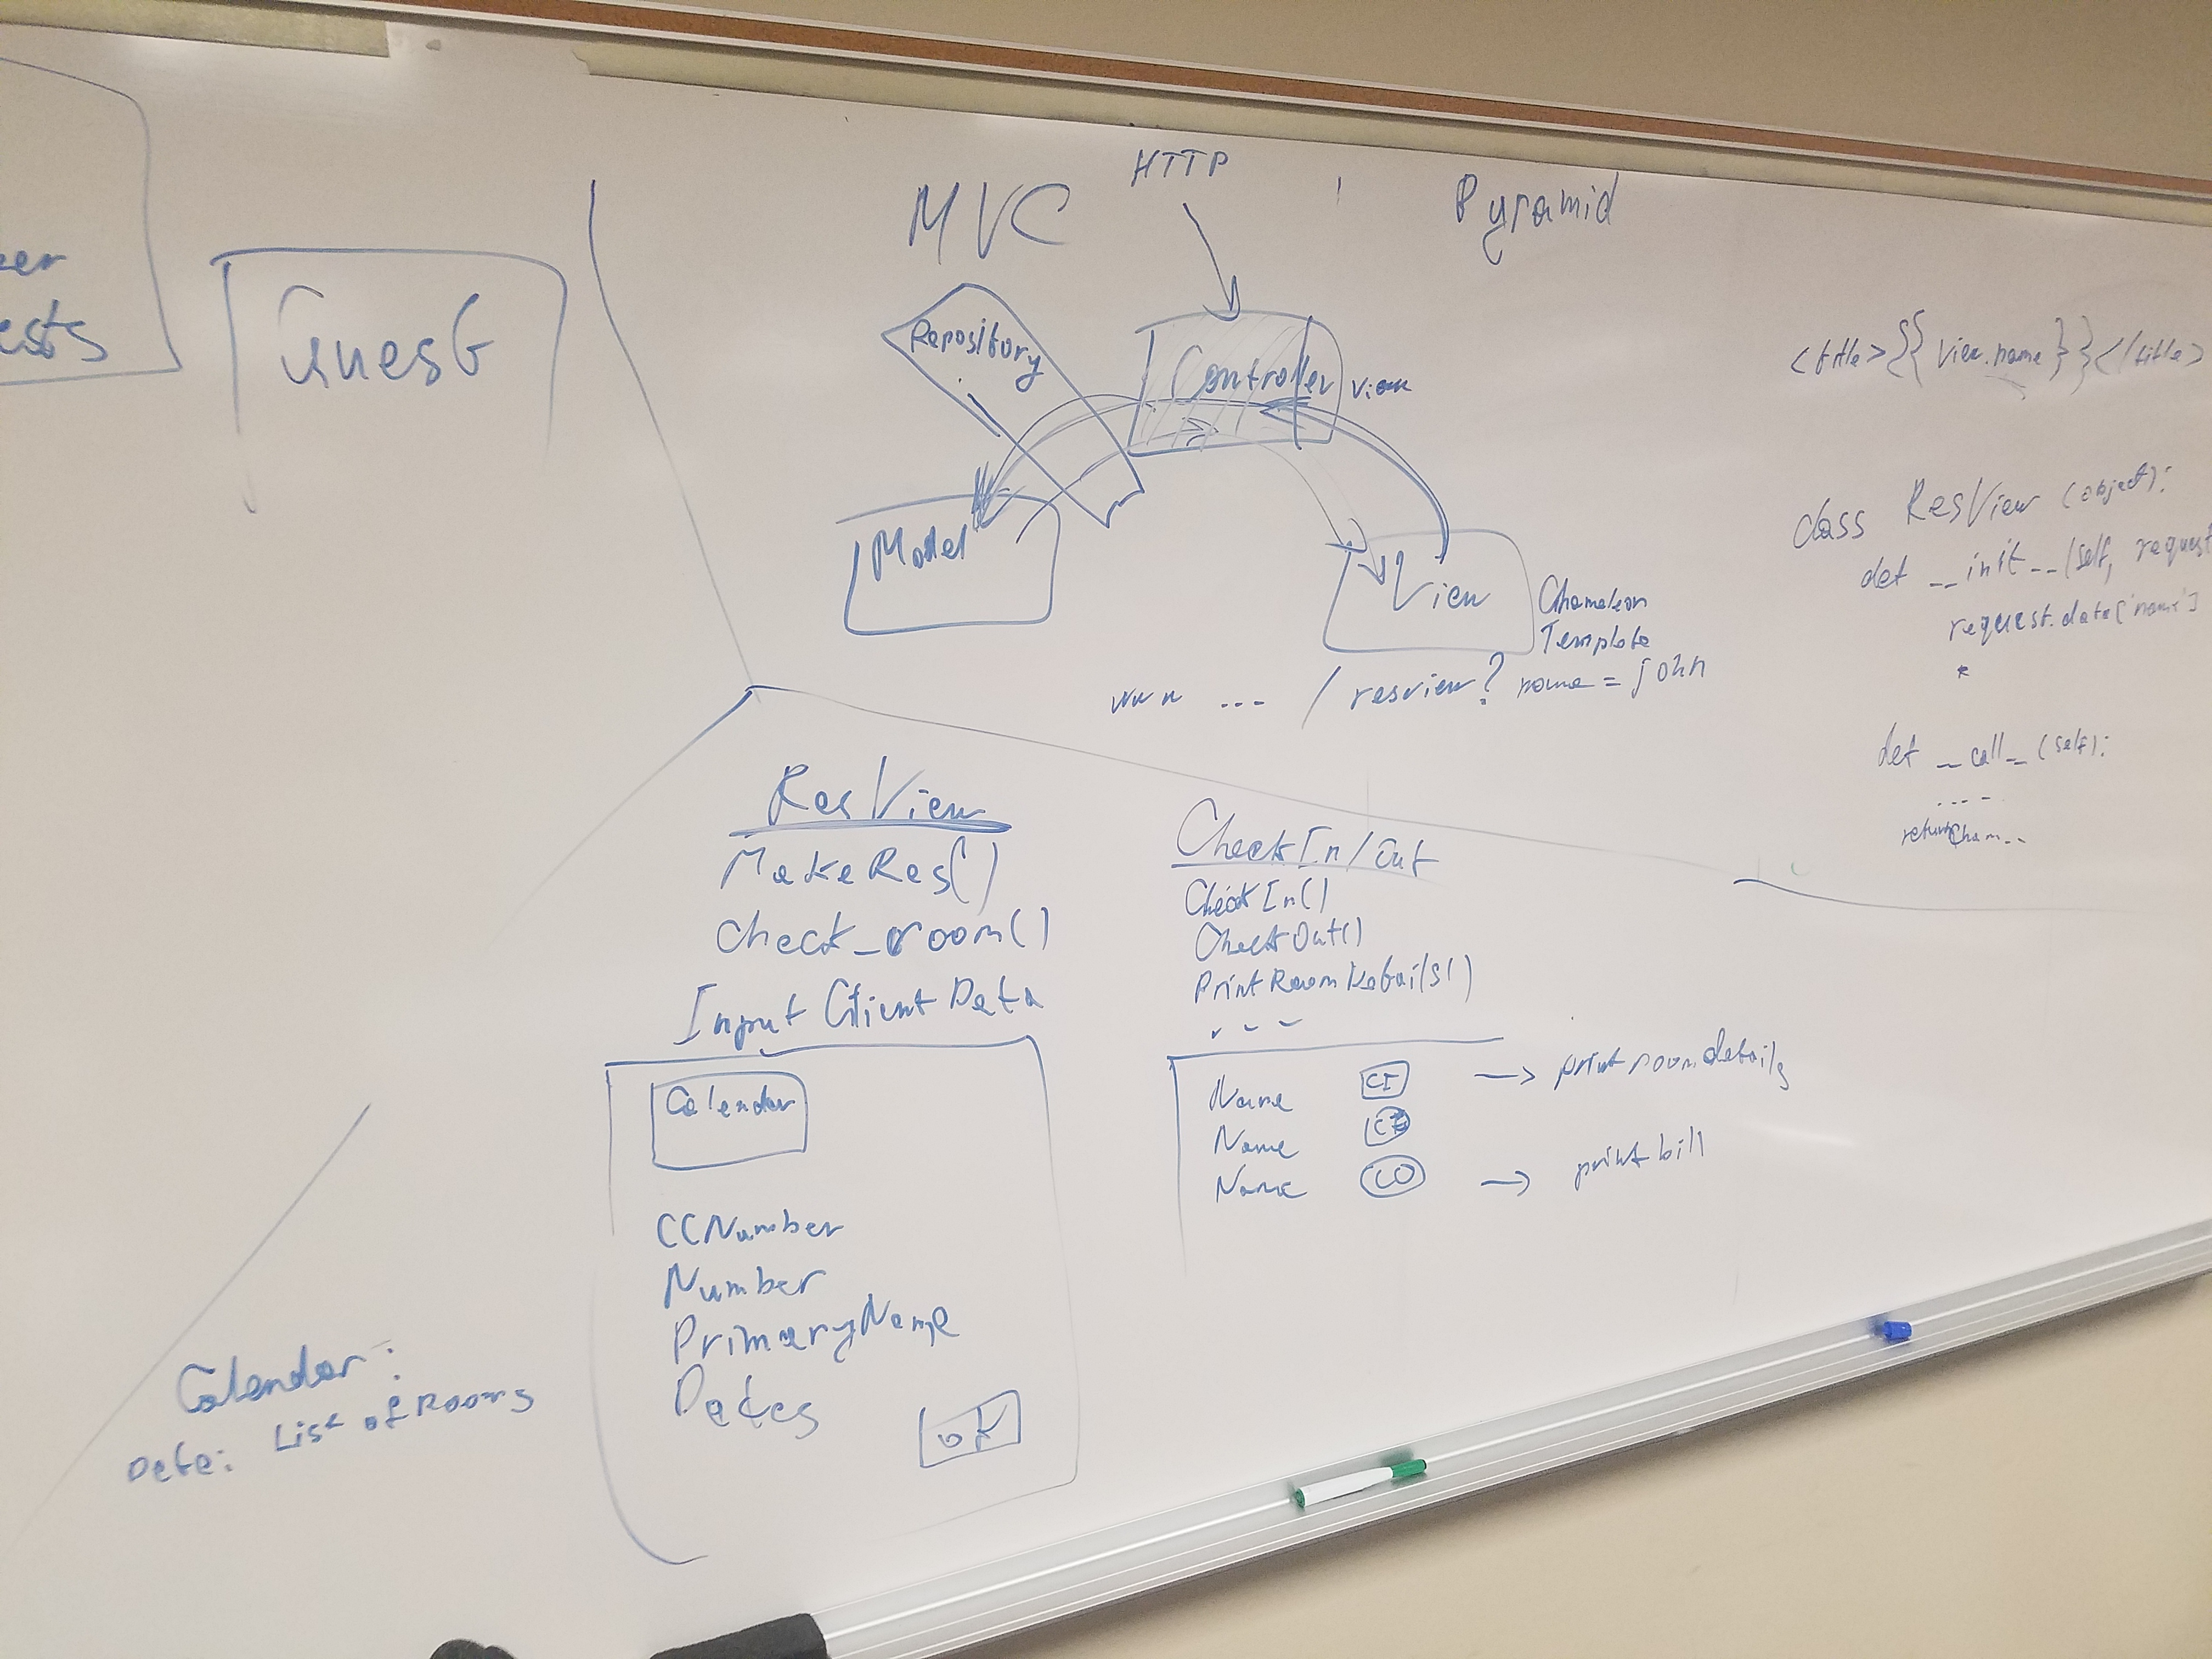 Guest
MVC
HTTP
Pyramid
Repository
Controller
View
Model
View
Chameleon
Template
www ... / resview? name = john
<title>{{ view.name }}</title>
class ResView (object):
def __init__(self, request
request.data['name']
def __call__(self):
....
return Cham...
ResView
MakeRes()
check_room()
InputClientData
Calendar
CCNumber
Number
PrimaryName
Dates
OK
CheckIn/Out
CheckIn()
CheckOut()
PrintRoomDetails()
- - -
Name CI → print room details
Name
Name CO → print bill
Calendar:
Date: List of Rooms